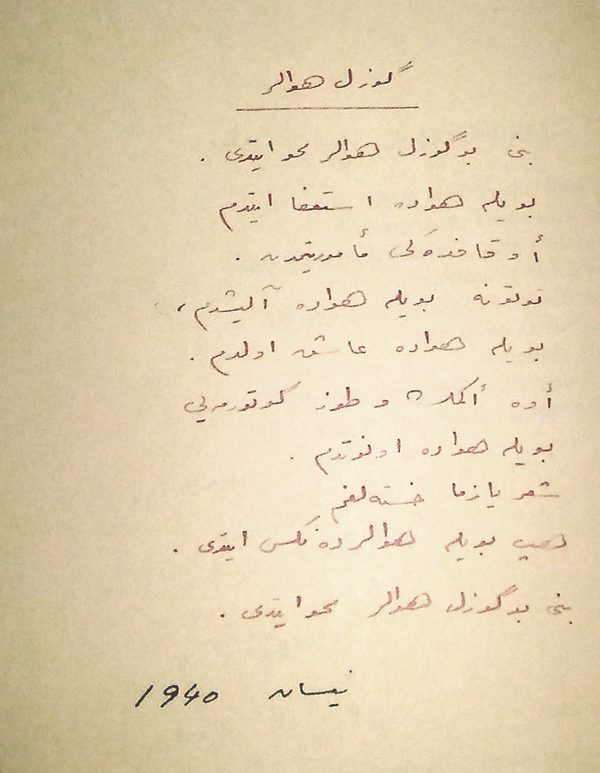 گوزل هوالر
بنی بو گوزل هوالر محو ایتدی .
بویله هواده استعفا ایتدم
أوقافده‌کی مأموریتمدن .
توتونه بویله هواده آلیشدم ،
بویله هواده عاشق اولدم .
أوه أکمک و طوز گوتورمه‌یی
بویله هواده اونوتدم .
شعر یازما خسته‌لغم
هپ بویله هوالرده نکس ایتدی .
بنی بو گوزل هوالر محو ایتدی .
نیسان 1940